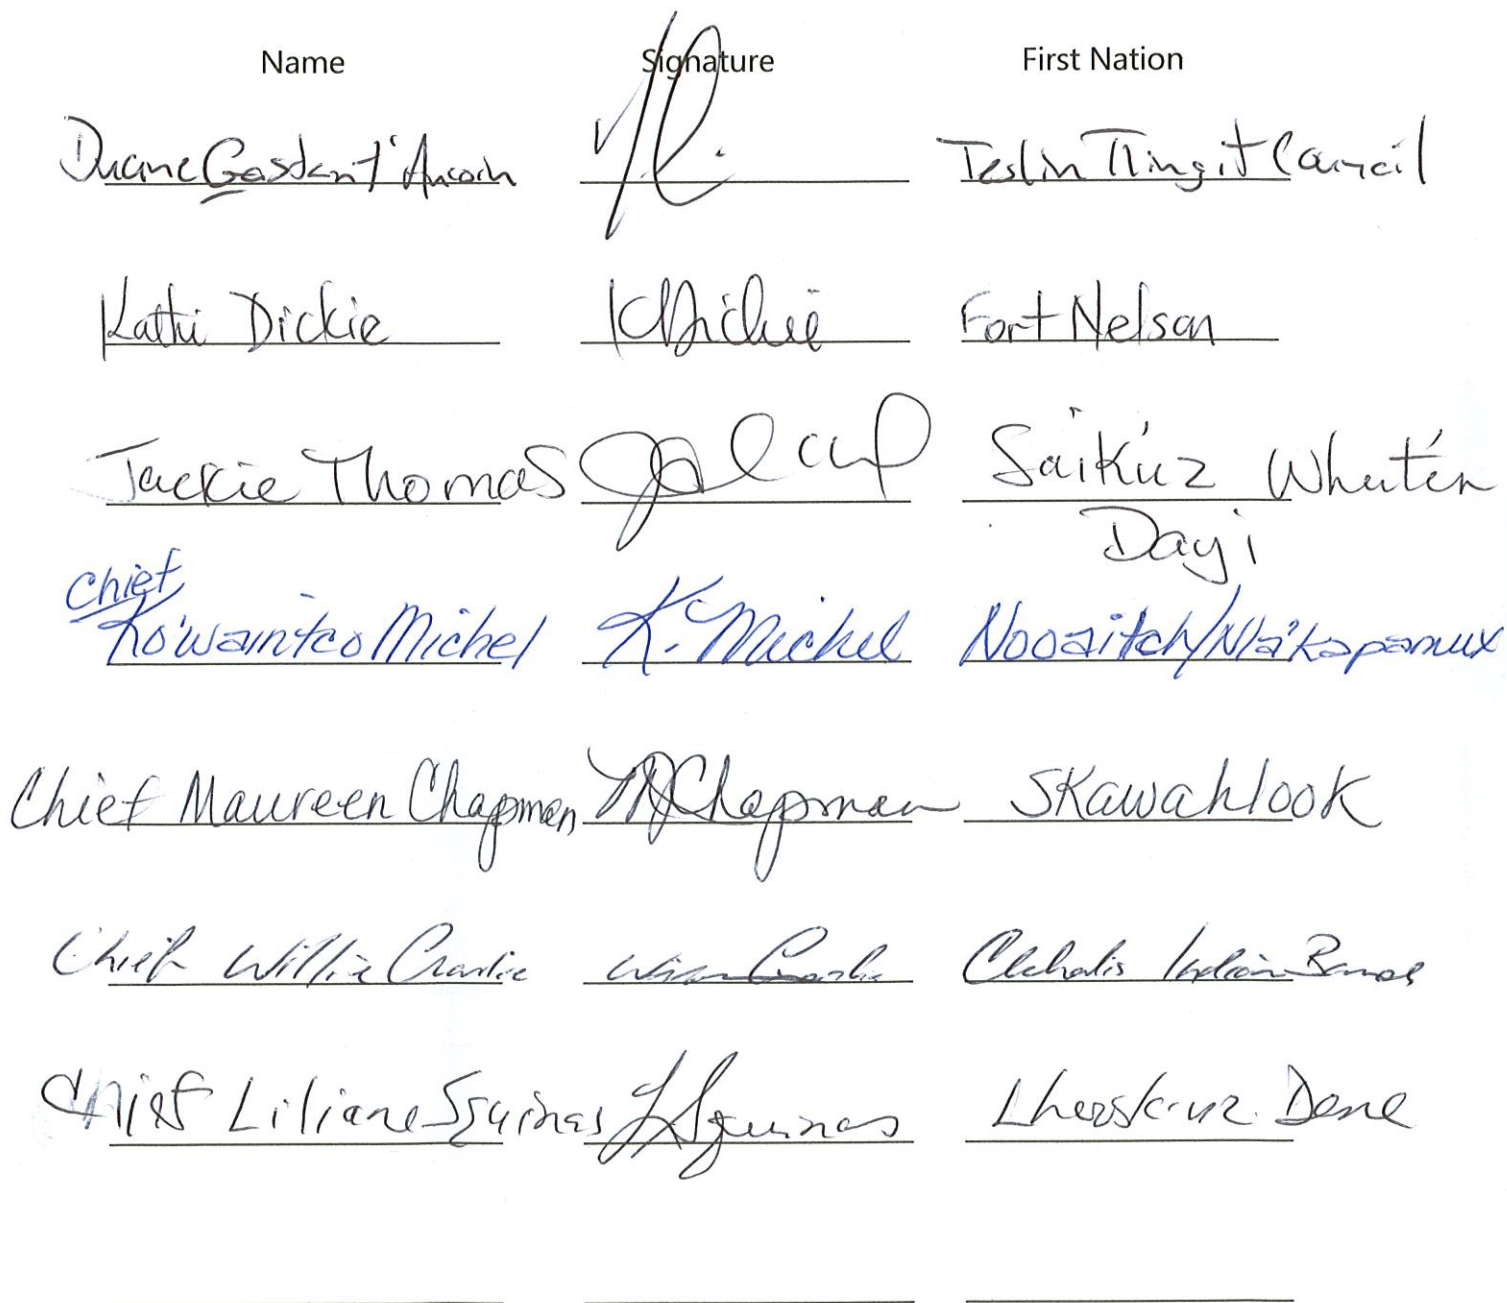 Name Signature First Nation
Duane Gastant' Aucoin Teslin Tlingit Council
Kathi Dickie KDickie Fort Nelson
Jackie Thomas Saik'uz Whut'en
Dayi
Chief
Ko'waintco Michel K. Michel Nooaitch/Nla'kapamux
Chief Maureen Chapman M Chapman Skawahlook
Chief Willie Charlie Chehalis Indian Band
Chief Liliane Squinas L Squinas Lhooskuz Dene